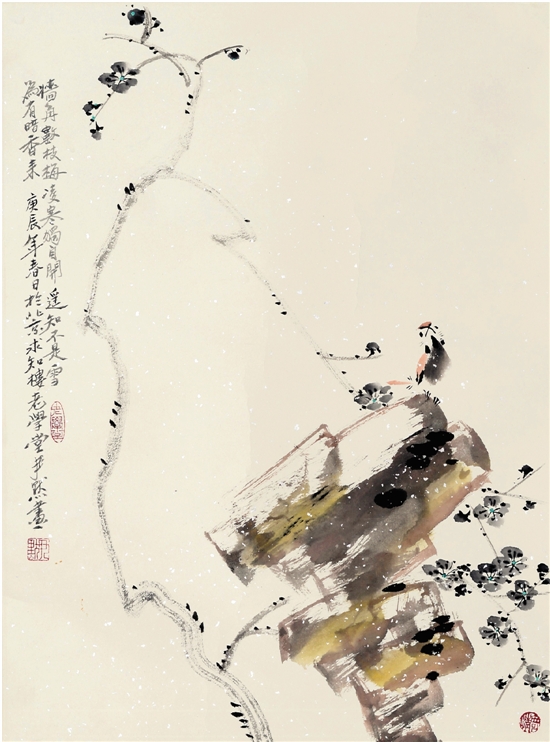 牆角數枝梅 凌寒獨自開 遙知不是雪
為有暗香來 庚辰年春日於北京求知樓老學堂 畫